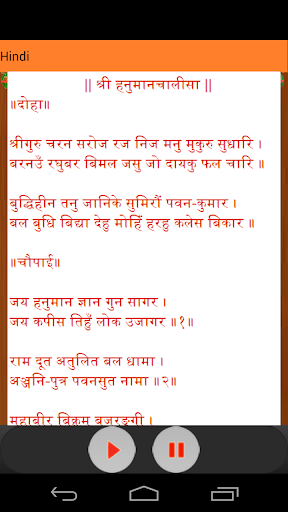 Hindi
|| श्री हनुमानचालीसा ||
॥दोहा॥
श्रीगुरु चरन सरोज रज निज मनु मुकुरु सुधारि ।
बरनउँ रघुबर बिमल जसु जो दायकु फल चारि ॥
बुद्धिहीन तनु जानिके सुमिरौं पवन-कुमार ।
बल बुधि बिद्या देहु मोहिं हरहु कलेस बिकार ॥
॥चौपाई॥
जय हनुमान ज्ञान गुन सागर ।
जय कपीस तिहुँ लोक उजागर ॥१॥
राम दूत अतुलित बल धामा ।
अञ्जनि-पुत्र पवनसुत नामा ॥२॥
महाबीर बिक्रम बजरङ्गी ।